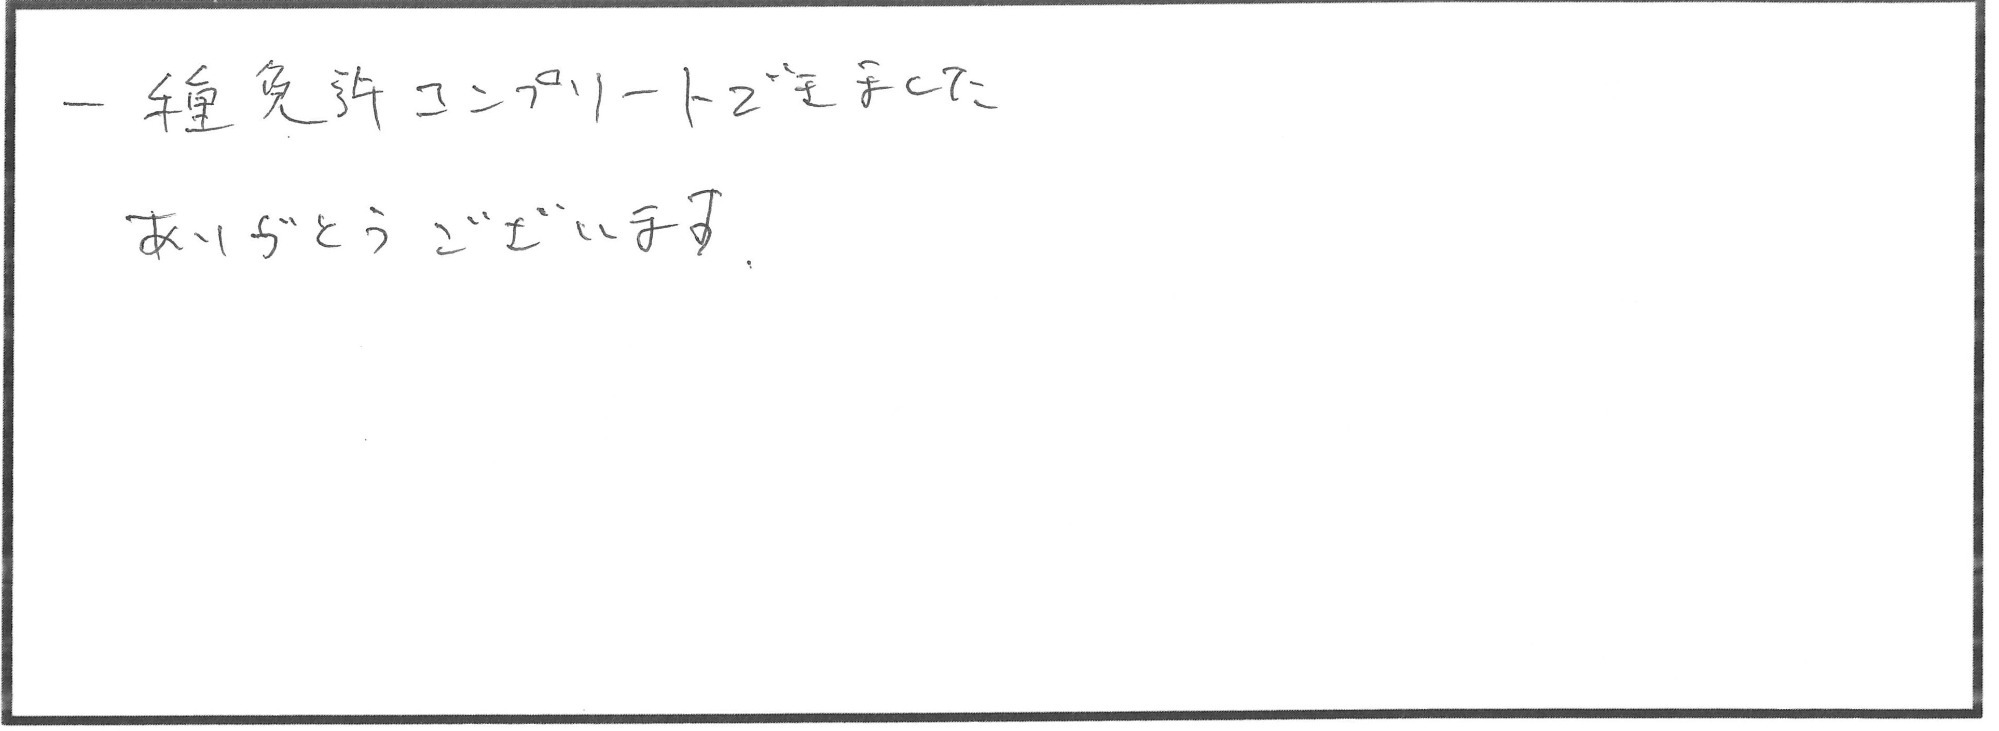 一種免許コンプリートできました
ありがとうございます.